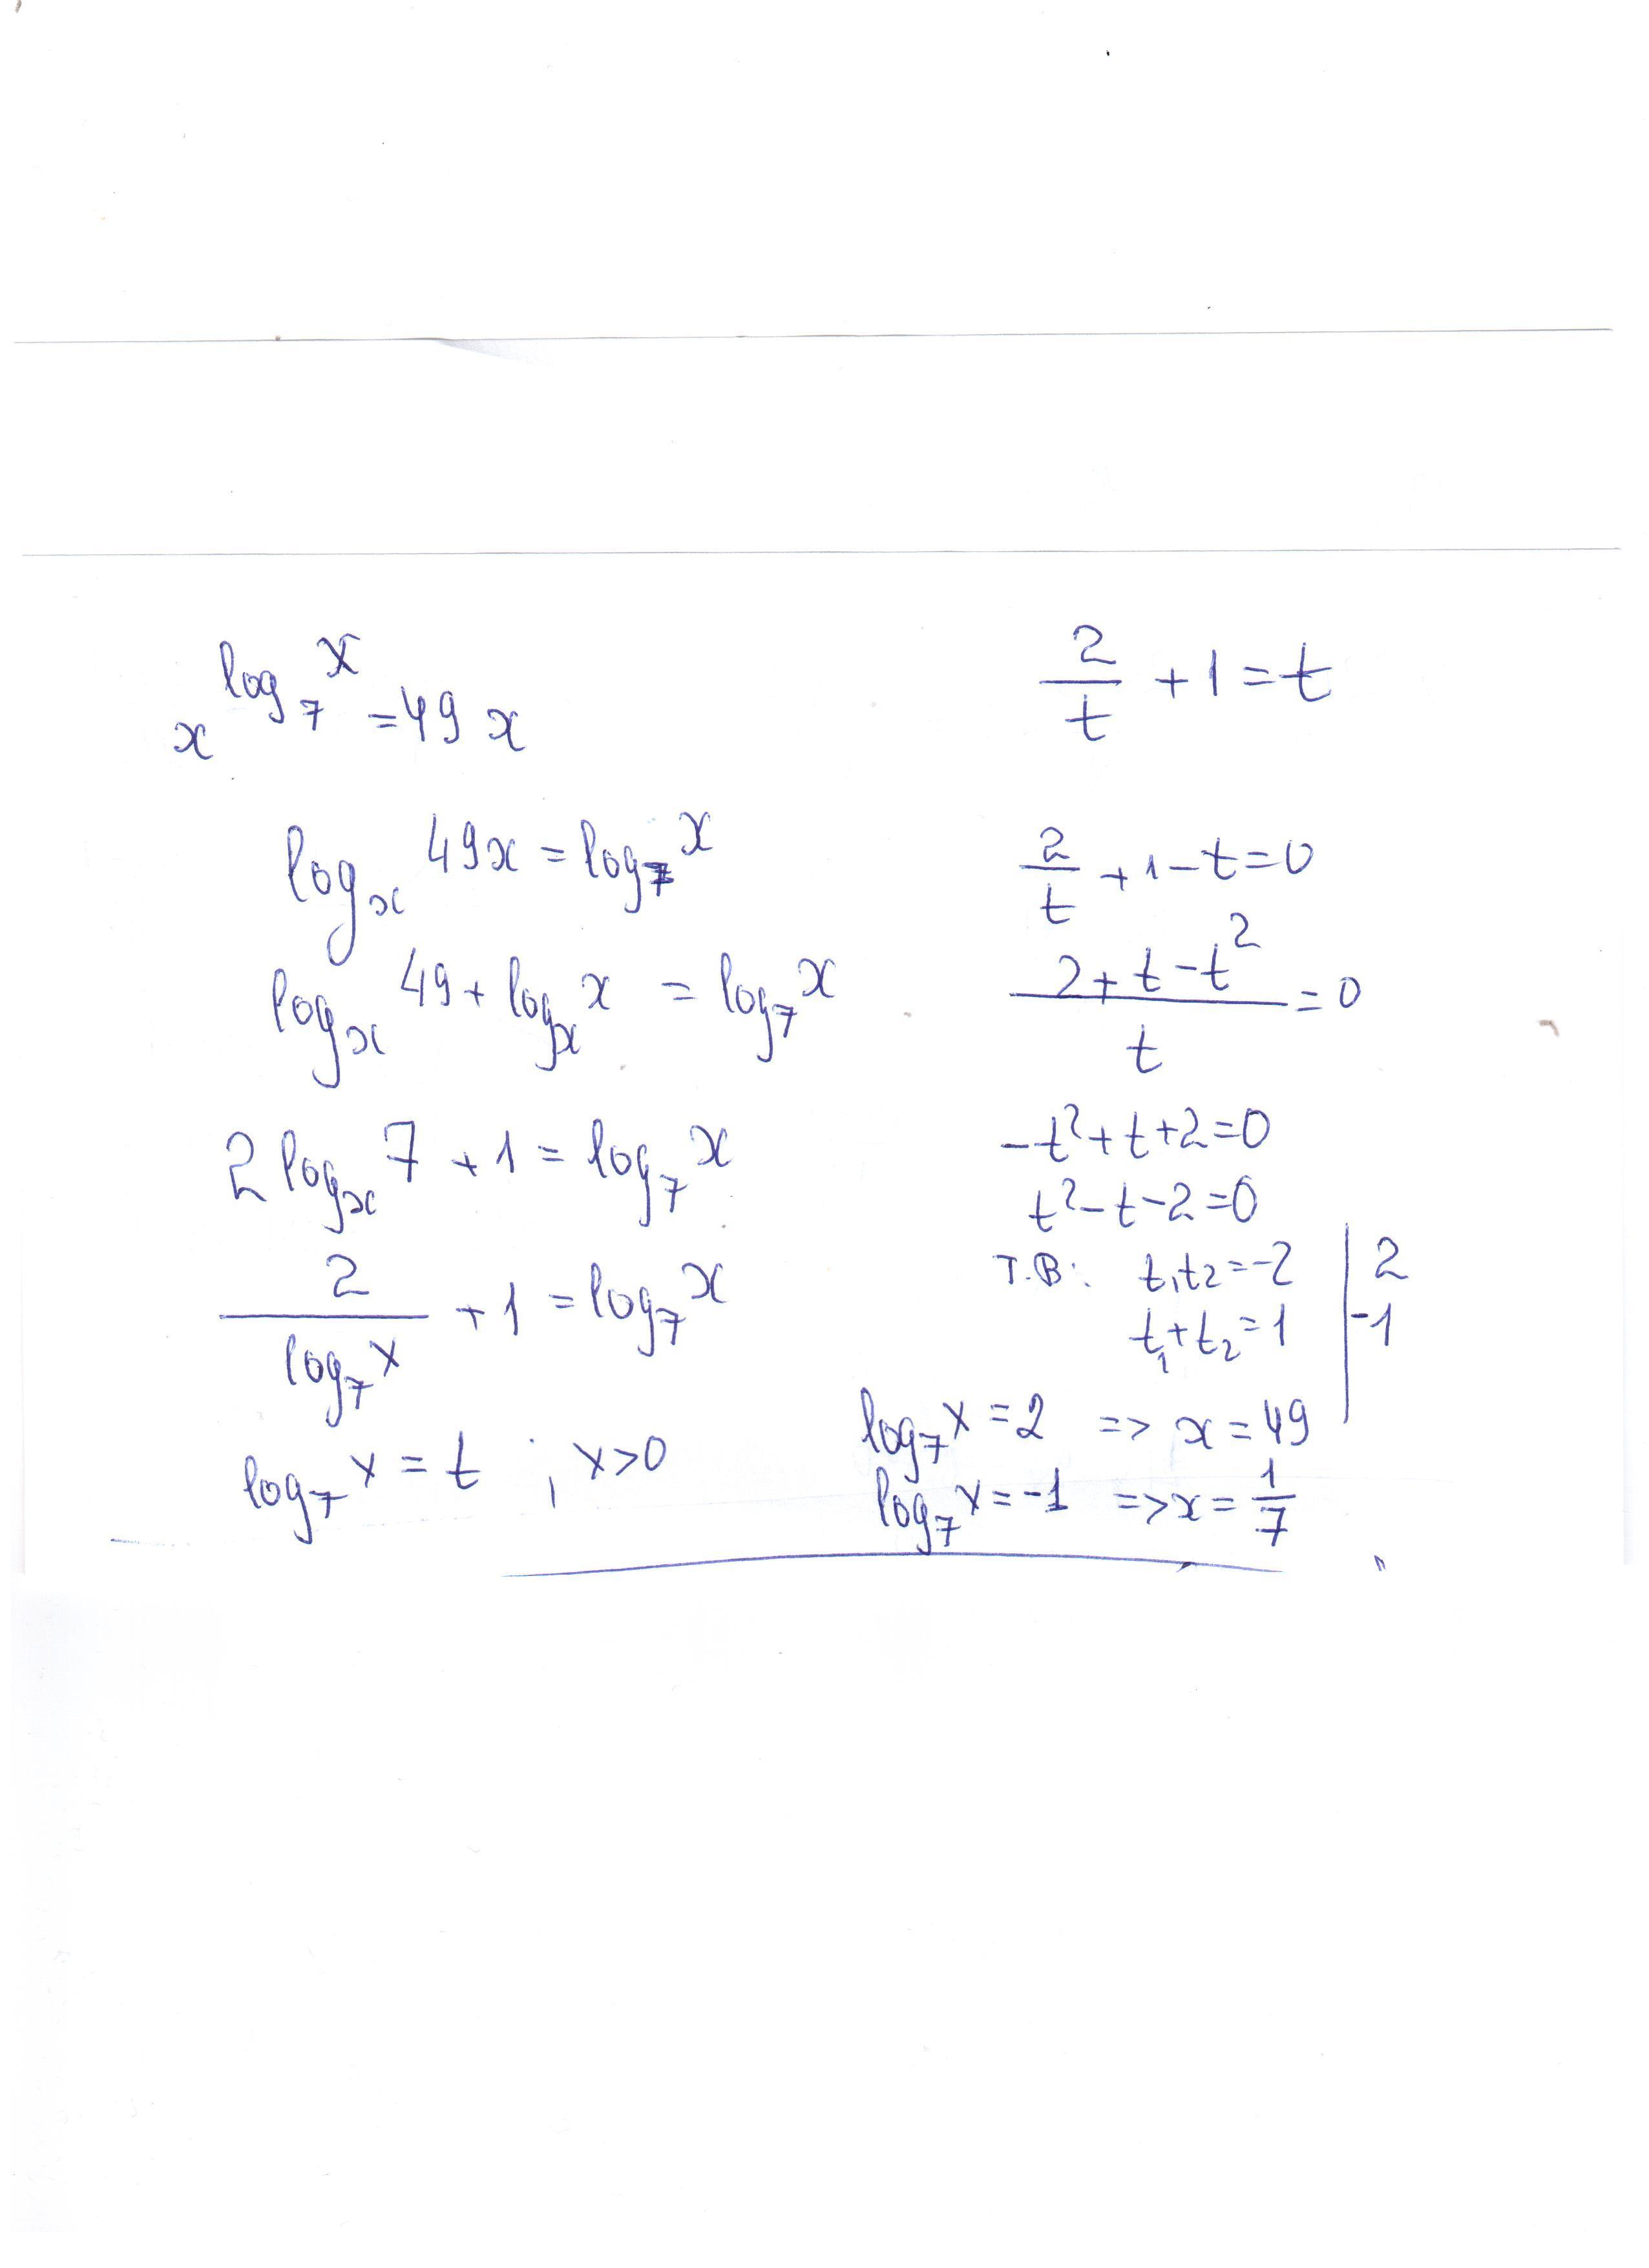 x^{log_7 x} = 49 x
log_x 49x = log_7 x
log_x 49 + log_x x = log_7 x
2 log_x 7 + 1 = log_7 x
2/(log_7 x) + 1 = log_7 x
log_7 x = t ; x>0
2/t + 1 = t
2/t + 1 - t = 0
(2 + t - t^2)/t = 0
-t^2 + t + 2 = 0
t^2 - t - 2 = 0
т.В: t_1 t_2 = -2 | 2
t_1 + t_2 = 1 | -1
log_7 x = 2 => x = 49
log_7 x = -1 => x = 1/7